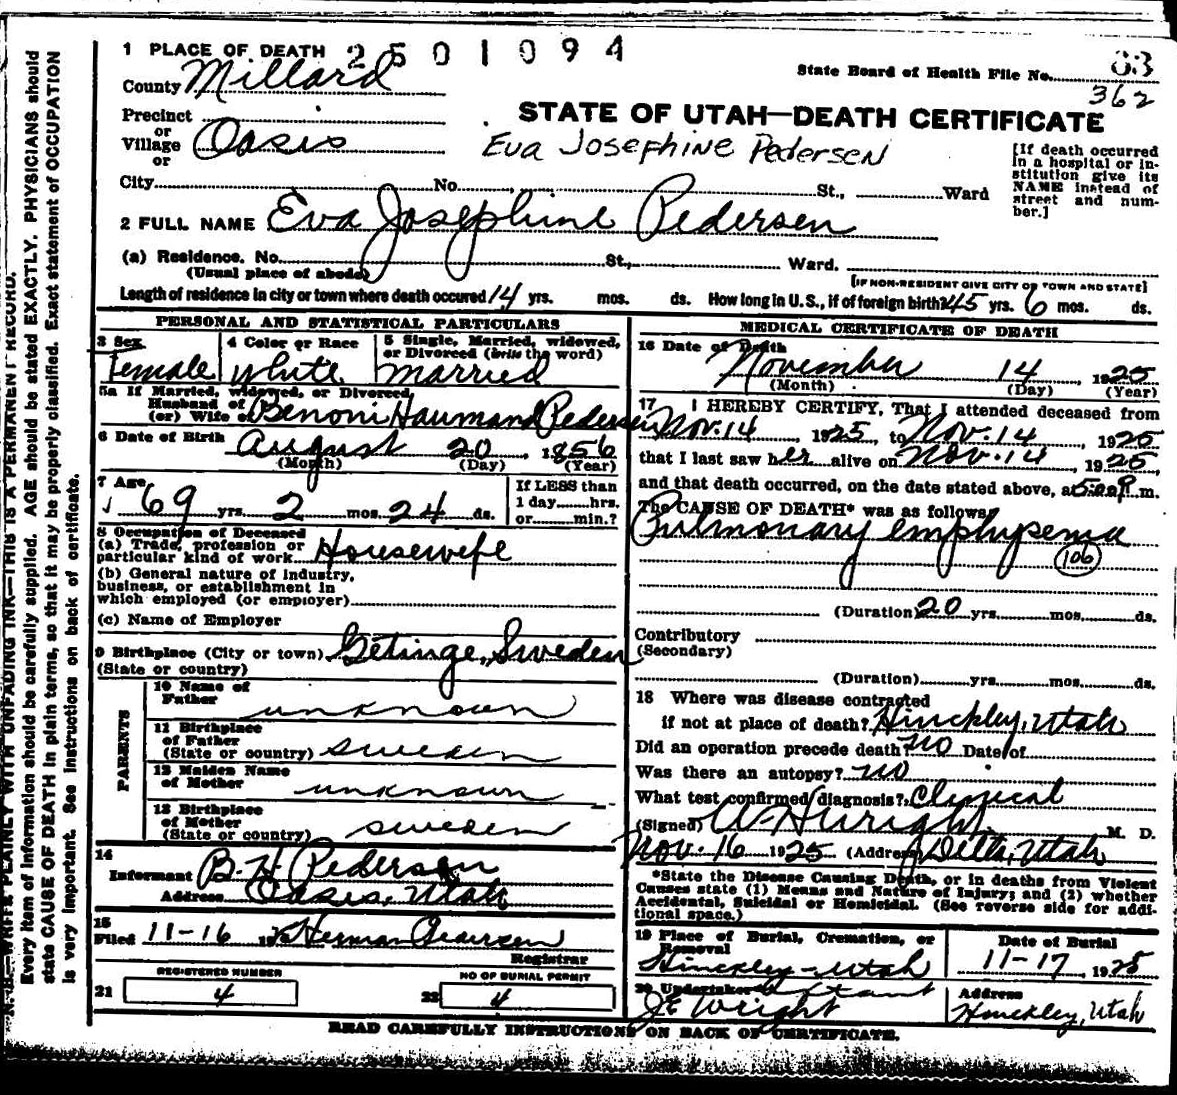 1 PLACE OF DEATH 2501094
County Millard
State Board of Health File No. 63
362
Precinct
or
Village Oasis
or
STATE OF UTAH—DEATH CERTIFICATE
Eva Josephine Pedersen
[If death occurred
in a hospital or in-
stitution give its
NAME instead of
street and num-
ber.]
City No. St., Ward
2 FULL NAME Eva Josephine Pedersen
(a) Residence. No. St., Ward.
(Usual place of abode)
[IF NON-RESIDENT GIVE CITY OR TOWN AND STATE]
Length of residence in city or town where death occured 14 yrs. mos. ds. How long in U. S., if of foreign birth? 45 yrs. 6 mos. ds.
PERSONAL AND STATISTICAL PARTICULARS
3 Sex
Female
4 Color or Race
White
5 Single, Married, widowed,
or Divorced (write the word)
married
5a If Married, widowed, or Divorced
Husband of
(or) Wife of Benoni Haumand Pedersen
6 Date of Birth August 20, 1856
(Month) (Day) (Year)
7 Age
69 yrs. 2 mos. 24 ds.
If LESS than
1 day......hrs.
or......min.?
8 Occupation of Deceased
(a) Trade, profession or
particular kind of work Housewife
(b) General nature of industry,
business, or establishment in
which employed (or employer)
(c) Name of Employer
9 Birthplace (City or town) Getinge, Sweden
(State or country)
PARENTS
10 Name of
Father unknown
11 Birthplace
of Father
(State or country) Sweden
12 Maiden Name
of Mother unknown
13 Birthplace
of Mother
(State or country) Sweden
14
Informant B. H. Pedersen
Address Oasis, Utah
15
Filed 11-16 1925 Herman
Registrar
REGISTERED NUMBER
21 4
NO OF BURIAL PERMIT
22 4
MEDICAL CERTIFICATE OF DEATH
16 Date of Death
November 14, 1925
(Month) (Day) (Year)
17 I HEREBY CERTIFY, That I attended deceased from
Nov. 14, 1925, to Nov. 14, 1925
that I last saw her alive on Nov. 14, 1925,
and that death occurred, on the date stated above, at 5:00 P. m.
The CAUSE OF DEATH* was as follows
Pulmonary emphysema
106
(Duration) 20 yrs. mos. ds.
Contributory
(Secondary)
(Duration) yrs. mos. ds.
18 Where was disease contracted
if not at place of death? Hinckley, Utah
Did an operation precede death? no Date of
Was there an autopsy? no
What test confirmed diagnosis? Clinical
(Signed) M. D.
Nov. 16 1925 (Address) Delta, Utah
*State the Disease Causing Death, or in deaths from Violent
Causes state (1) Means and Nature of Injury; and (2) whether
Accidental, Suicidal or Homicidal. (See reverse side for addi-
tional space.)
19 Place of Burial, Cremation, or
Removal
Hinckley-Utah
Date of Burial
11-17, 1925
20 Undertaker
J E Wright
Address
Hinckley, Utah
READ CAREFULLY INSTRUCTIONS ON BACK OF CERTIFICATE.
N. B.—WRITE PLAINLY WITH UNFADING INK—THIS IS A PERMANENT RECORD.
Every item of information should be carefully supplied. AGE should be stated EXACTLY. PHYSICIANS should
state CAUSE OF DEATH in plain terms, so that it may be properly classified. Exact statement of OCCUPATION
is very important. See instructions on back of certificate.